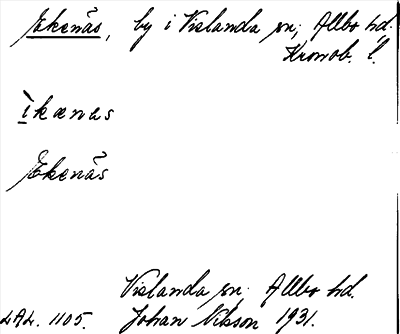 Ekenäs, by i Vislanda sn, Allbo hd.
Kronob. l.
ìkænas
Ekenäs
Vislanda sn. Allbo hd.
LAL. 1105. Johan Nilsson 1931.